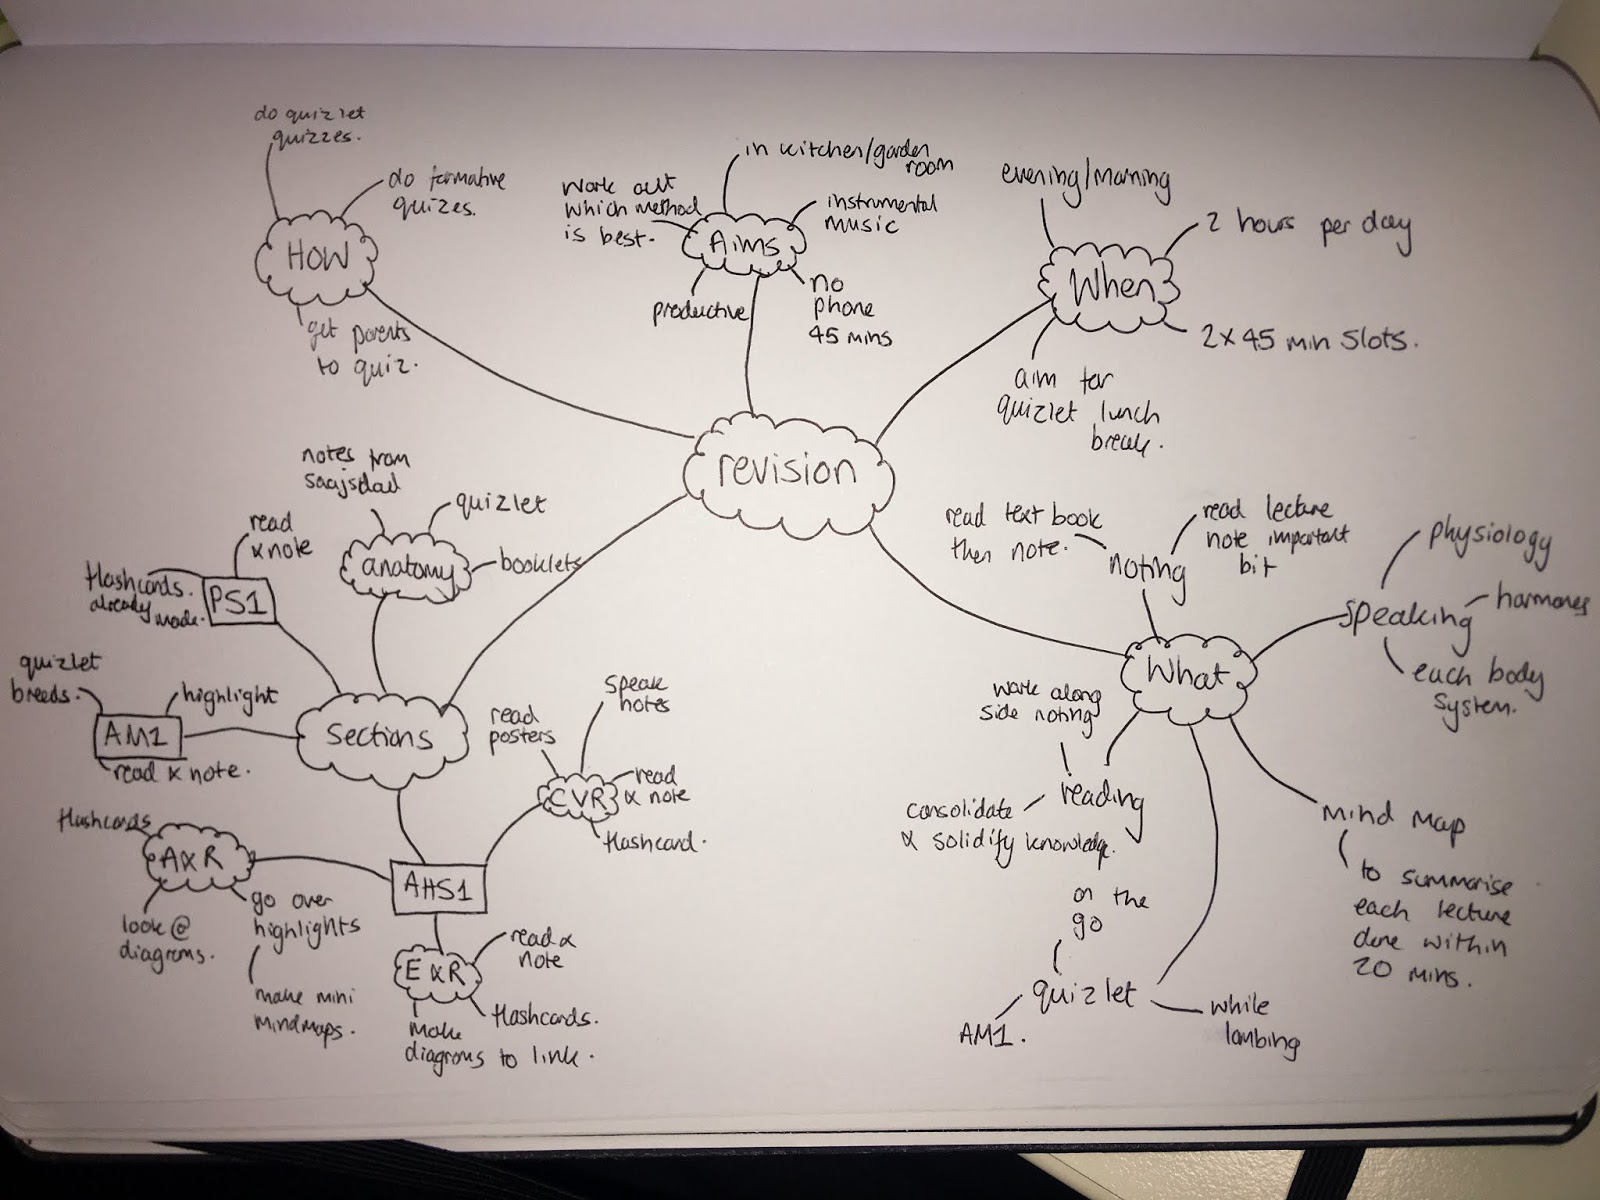 do quizlet
quizzes.
do formative
quizes.
HOW
get parents
to quiz.
in kitchen/garden
room
work out
which method
is best.
instrumental
music
Aims
productive
no
phone
45 mins
evening/morning
2 hours per day
When
2x45 min slots.
aim for
quizlet lunch
break.
revision
notes from
quizlet
anatomy
booklets
read
& note
flashcards.
already
made.
PS1
quizlet
breeds.
highlight
AM1
read & note.
sections
read
posters
speak
notes
CVR
read
& note
flashcard.
flashcards
A&R
look @
diagrams.
go over
highlights
make mini
mindmaps.
AHS1
E&R
read &
note
flashcards.
make
diagrams to link.
read text book
then note.
read lecture
note important
bit
noting
physiology
speaking
hormones
each body
system.
What
work along
side noting
reading
consolidate
& solidify knowledge.
mind map
to summarise
each lecture
done within
20 mins.
on the
go
quizlet
AM1.
while
lambing